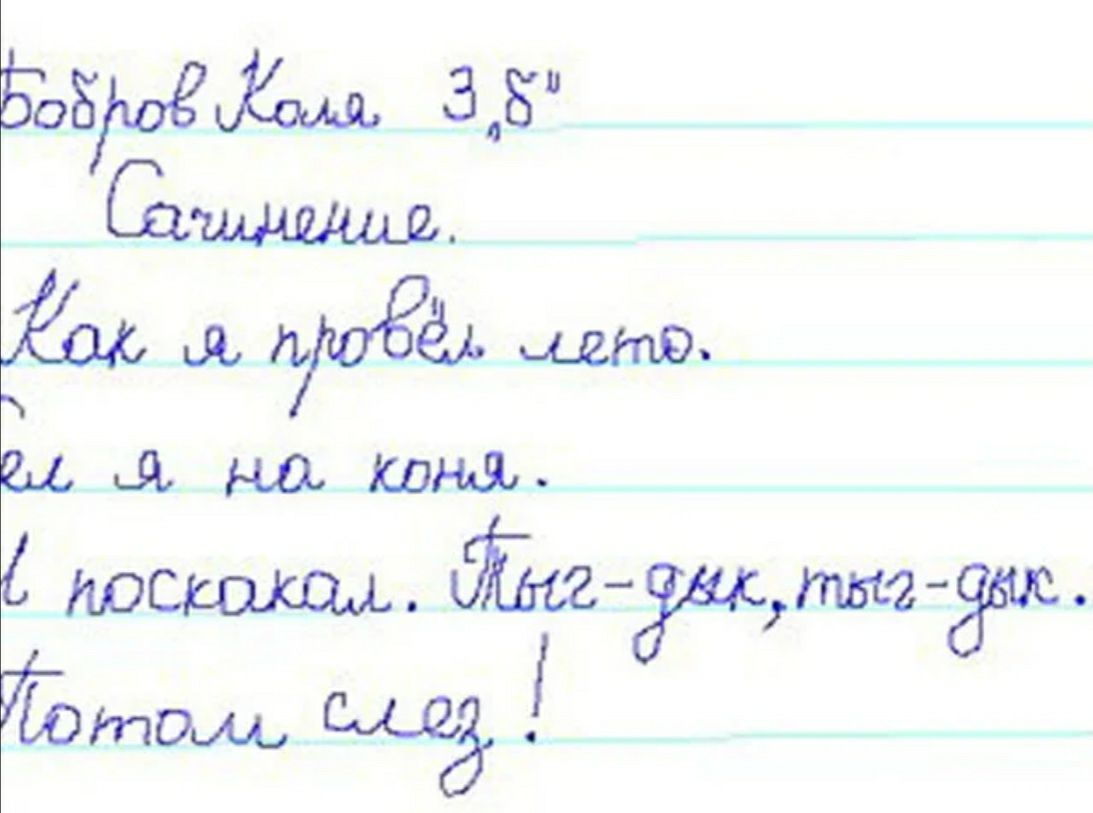 Бобров Коля 3 „б“
Сочинение.
Как я провёл лето.
Сел я на коня.
И поскакал. Тыг-дык, тыг-дык.
Потом слез!